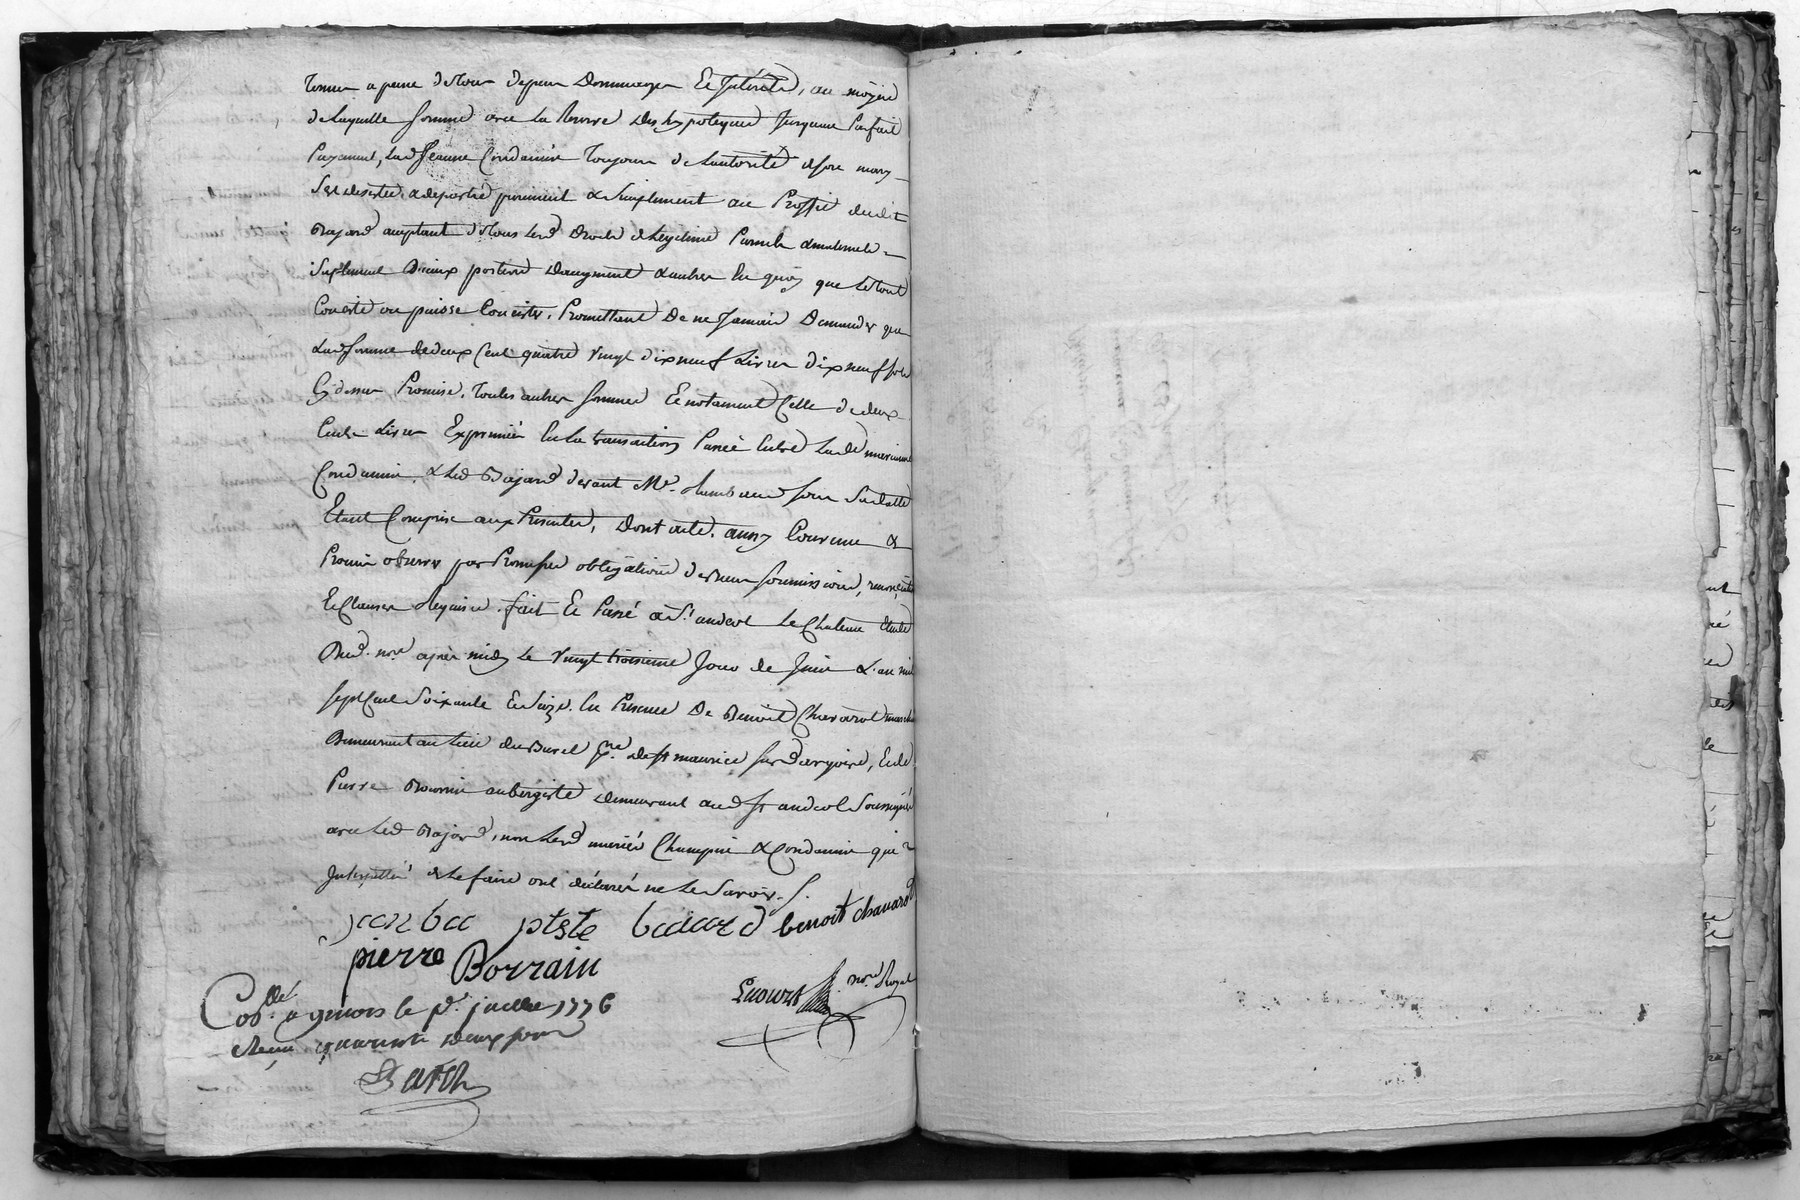 termes a peine de tous depens Dommages Et Interets, au moyen
de laquelle somme avec la Reserve Des hypoteques Jusqu'au Parfait
Payement, lad Jeanne Condamin Toujours de Lautorité de son mary
Sest desistée & departie purement & Simplement au Proffit dudit
Bajard acceptant de tous lesd Droits de Legitime Paternelle & maternelle
Suplement Diceux portion Daugment & autres En quoy que le tout
Consiste ou puisse Consister, Promettant De ne Jamais Demander que
Lad somme de deux Cent quatre Vingt dix neuf Livres dix neuf sols
Cy dessus Promise, Toutes autres sommes Et notament Celle de deux
Cents Livres Exprimée En la transaction Passée Entre Lad
Condamin & Led Bajard devant Me. sous Sa datte
Etant Comprise aux Presentes, Dont acte, ainsy Convenu &
Promis observer par Promesses obligations soumissions,
Et Clauses Requises. fait Et Passé a St. andeol Le Chateau Etude
Dud. nore après midy Le Vingt troisieme Jour de Juin L'an mil
sept Cent Soixante Et Seize. En Presence De Benoit Chavarot
Demeurant au Lieu du Burel de St maurice sur dargoire, Et de
Pierre aubergiste Demeurant aud St andeol Soussignés
avec Led Bajard, non Lesd mariés Champin & Condamin qui
Interpellés de Le faire ont déclarés ne Le Savoir.
jan ba ptste baiard benoit chavarot
pierre Borrain
nore Royal
Colé. a givors le pr. juillet 1776
Recu quarente deux sous